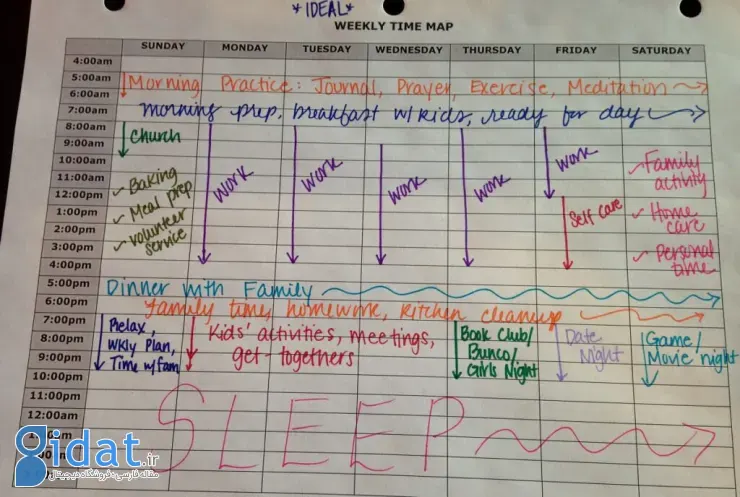 *IDEAL*
WEEKLY TIME MAP
SUNDAY MONDAY TUESDAY WEDNESDAY THURSDAY FRIDAY SATURDAY
4:00am
5:00am
Morning Practice: Journal, Prayer, Exercise, Meditation
6:00am
7:00am
morning prep, breakfast w/kids, ready for day
8:00am
Church
9:00am
10:00am
11:00am
12:00pm
1:00pm
2:00pm
3:00pm
4:00pm
Baking
Meal prep
volunteer
service
work
work
work
work
work
Self care
Family
activity
Home
care
Personal
time
5:00pm
Dinner with Family
6:00pm
family time, homework, kitchen cleanup
7:00pm
8:00pm
9:00pm
10:00pm
Relax,
Wkly Plan,
Time w/fam
Kids' activities, meetings,
get-togethers
Book Club/
Bunco/
Girls Night
Date
Night
Game/
Movie night
11:00pm
12:00am
SLEEP
gidat.ir
مقاله فارسی • فروشگاه دیجیتال